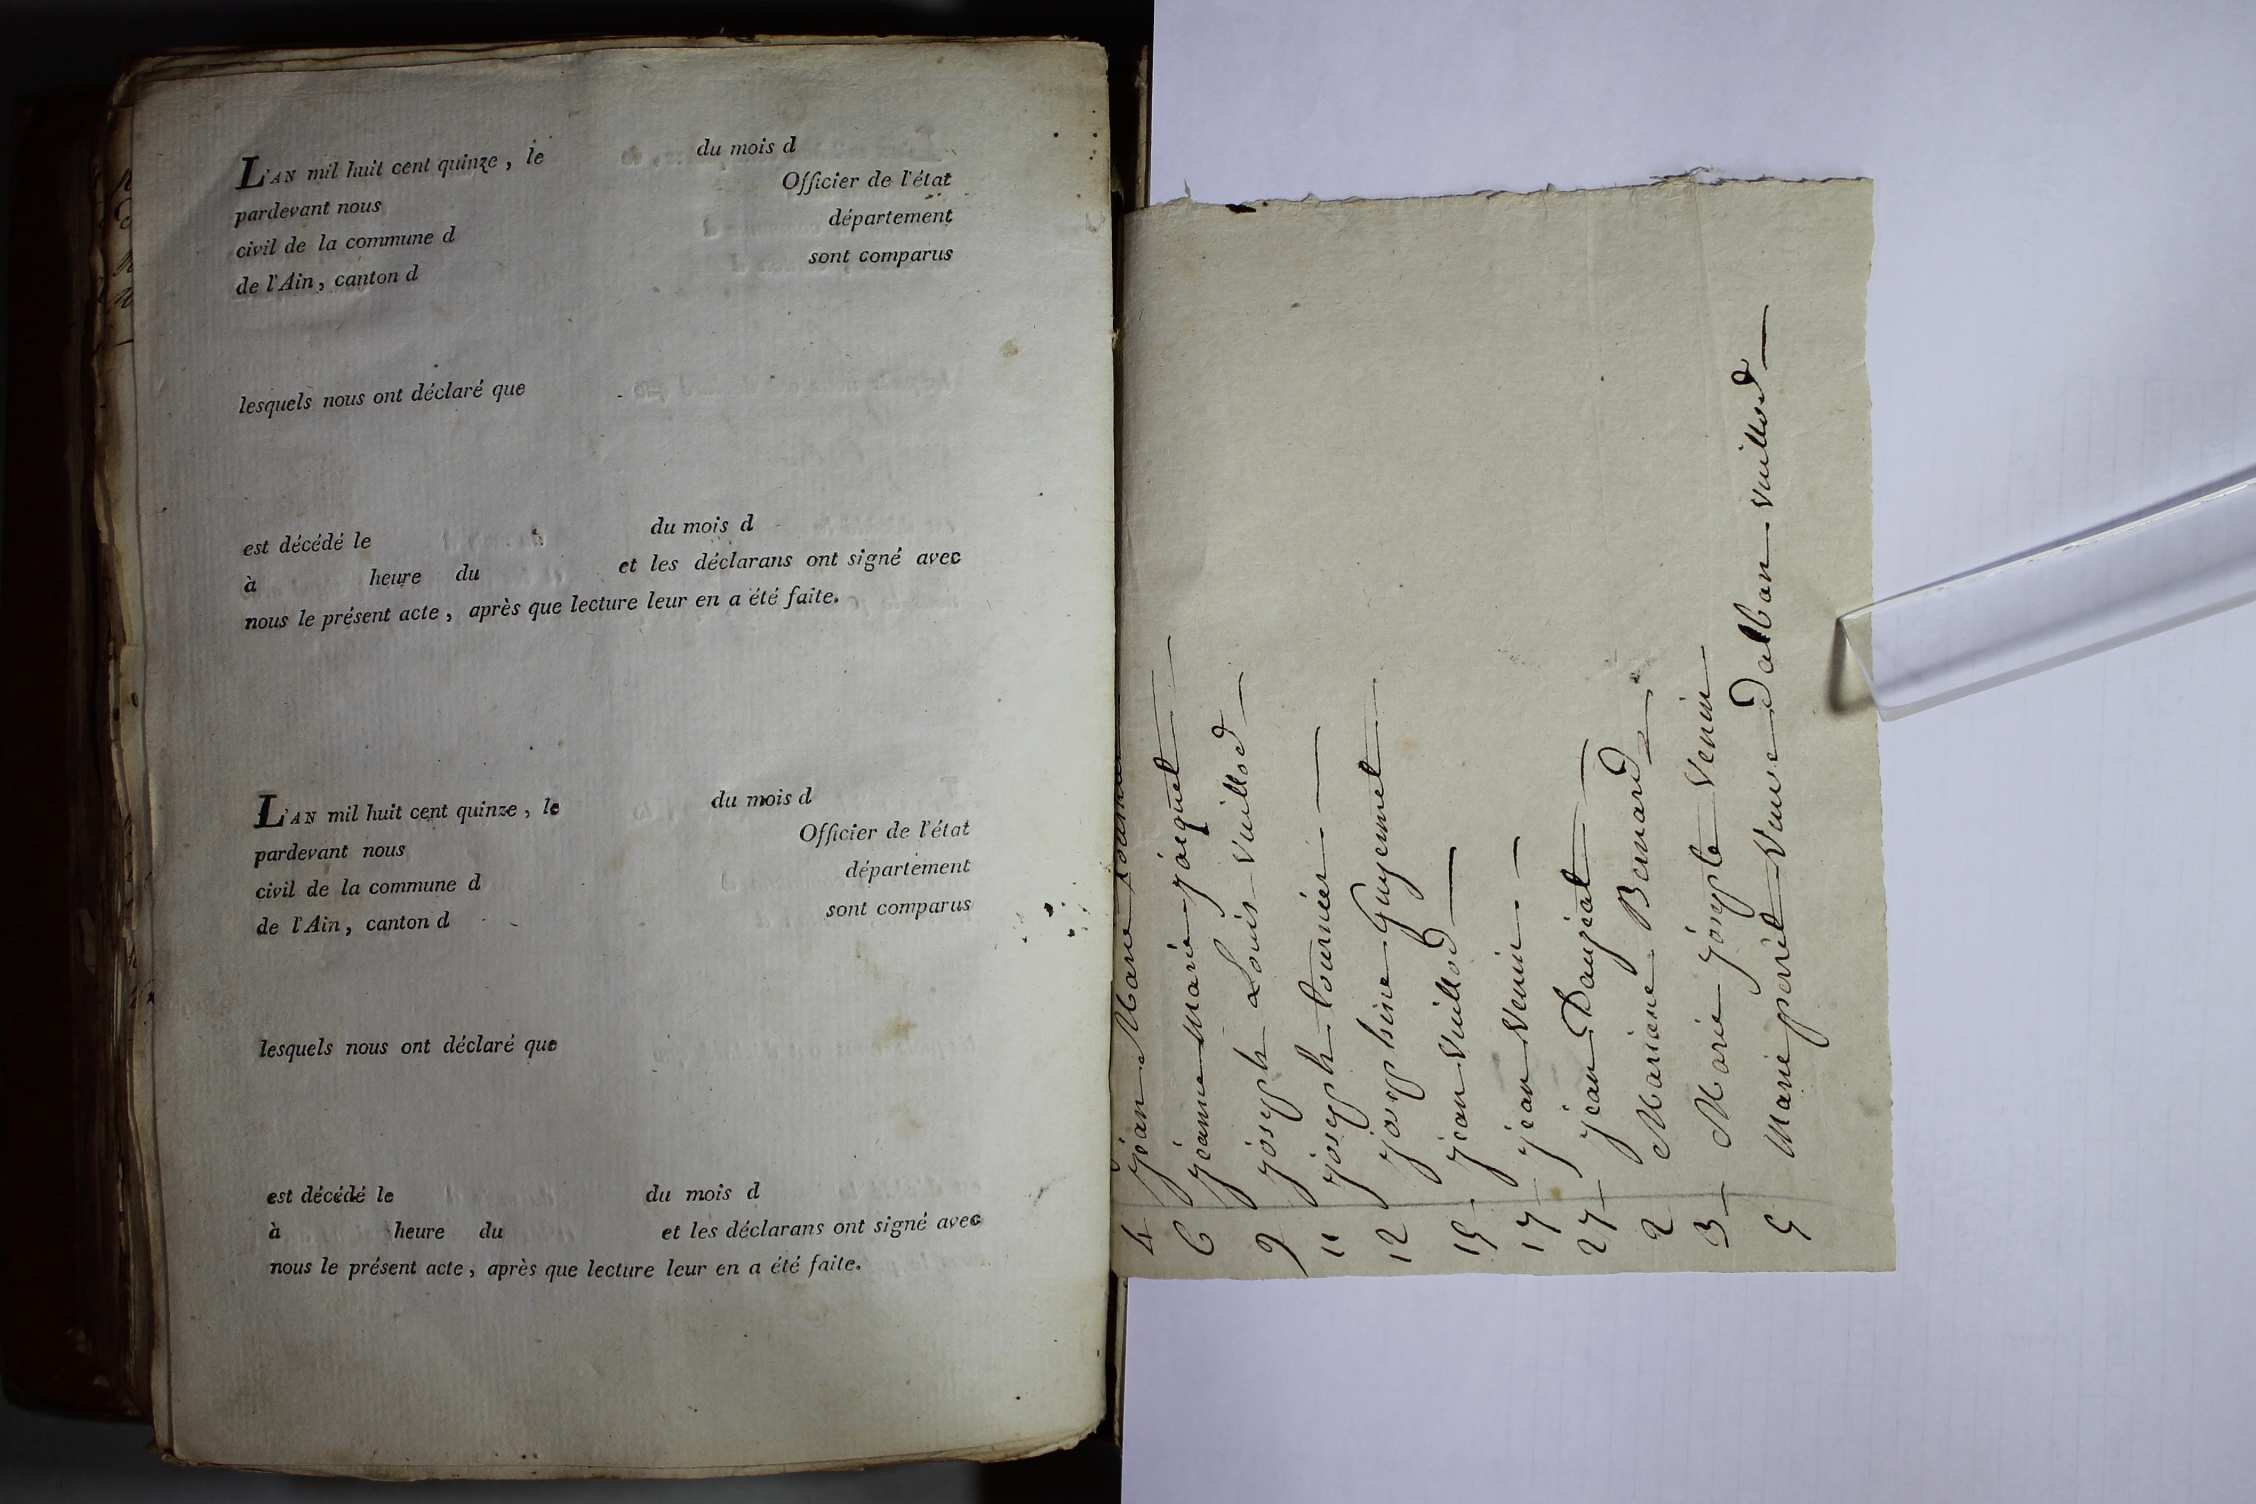 L'AN mil huit cent quinze, le du mois d
pardevant nous Officier de l'état
civil de la commune d département
de l'Ain, canton d sont comparus
lesquels nous ont déclaré que
est décédé le du mois d
à heure du et les déclarans ont signé avec
nous le présent acte, après que lecture leur en a été faite.
L'AN mil huit cent quinze, le du mois d
pardevant nous Officier de l'état
civil de la commune d département
de l'Ain, canton d sont comparus
lesquels nous ont déclaré que
est décédé le du mois d
à heure du et les déclarans ont signé avec
nous le présent acte, après que lecture leur en a été faite.
4 jean Marie
6 jeanne Marie jacquet
9 joseph Louis Vuillod
11 joseph tournier
12 josephine Guyennet
15 jean Vuillod
17 jean Venin
27 jean Danjeat
2 Mariane Bernard
3 Marie josephte Venin
9 Marie perret Veuve Dalban Vuillod